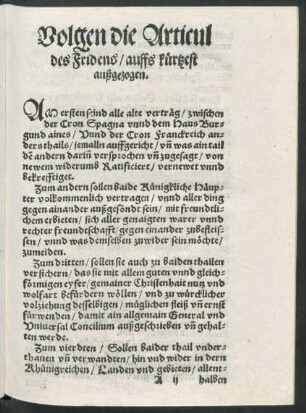 Volgen die Articul
des Fridens / auffs kürtzest
außgezogen.
AM ersten seind alle alte verträg / zwischen
der Cron Spagna vnnd dem Hauß Bur-
gund aines / Vnnd der Cron Franckreich an-
ders thails / jemalln auffgericht / vñ was ain tail
dẽ andern darin̄ versprochen vñ zugesagt / von
newem widerumb Ratificiert / vernewet vnnd
bekrefftiget.
Zum andern sollen baide Künigkliche Häup-
ter volkommenlich vertragen / vnnd aller ding
gegen ainander außgesönt sein / mit freundtli-
chem erbieten / sich aller genaigten warer vnnd
rechter freundtschafft / gegen einander zubefleis-
sen / vnnd was demselben zuwider sein möchte /
zumeiden.
Zum dritten / sollen sie auch zu baiden thailen
versichern / das sie mit allem guten vnnd gleich-
förmigen eyfer / gemainer Christenhait nutz vnd
wolfart befürdern wöllen / vnd zu würcklicher
volziehung desselbigen / müglichen fleiß vñ ernst
fürwenden / damit ain allgemain General vnd
Vniuersal Concilium außgeschrieben vñ gehal-
ten werde.
Zum vierdten / Sollen baider thail vnder-
thanen vñ verwandten / hin vnd wider in dern
Khünigreichen / Landen vnd gebieten / allent-
A ij halben